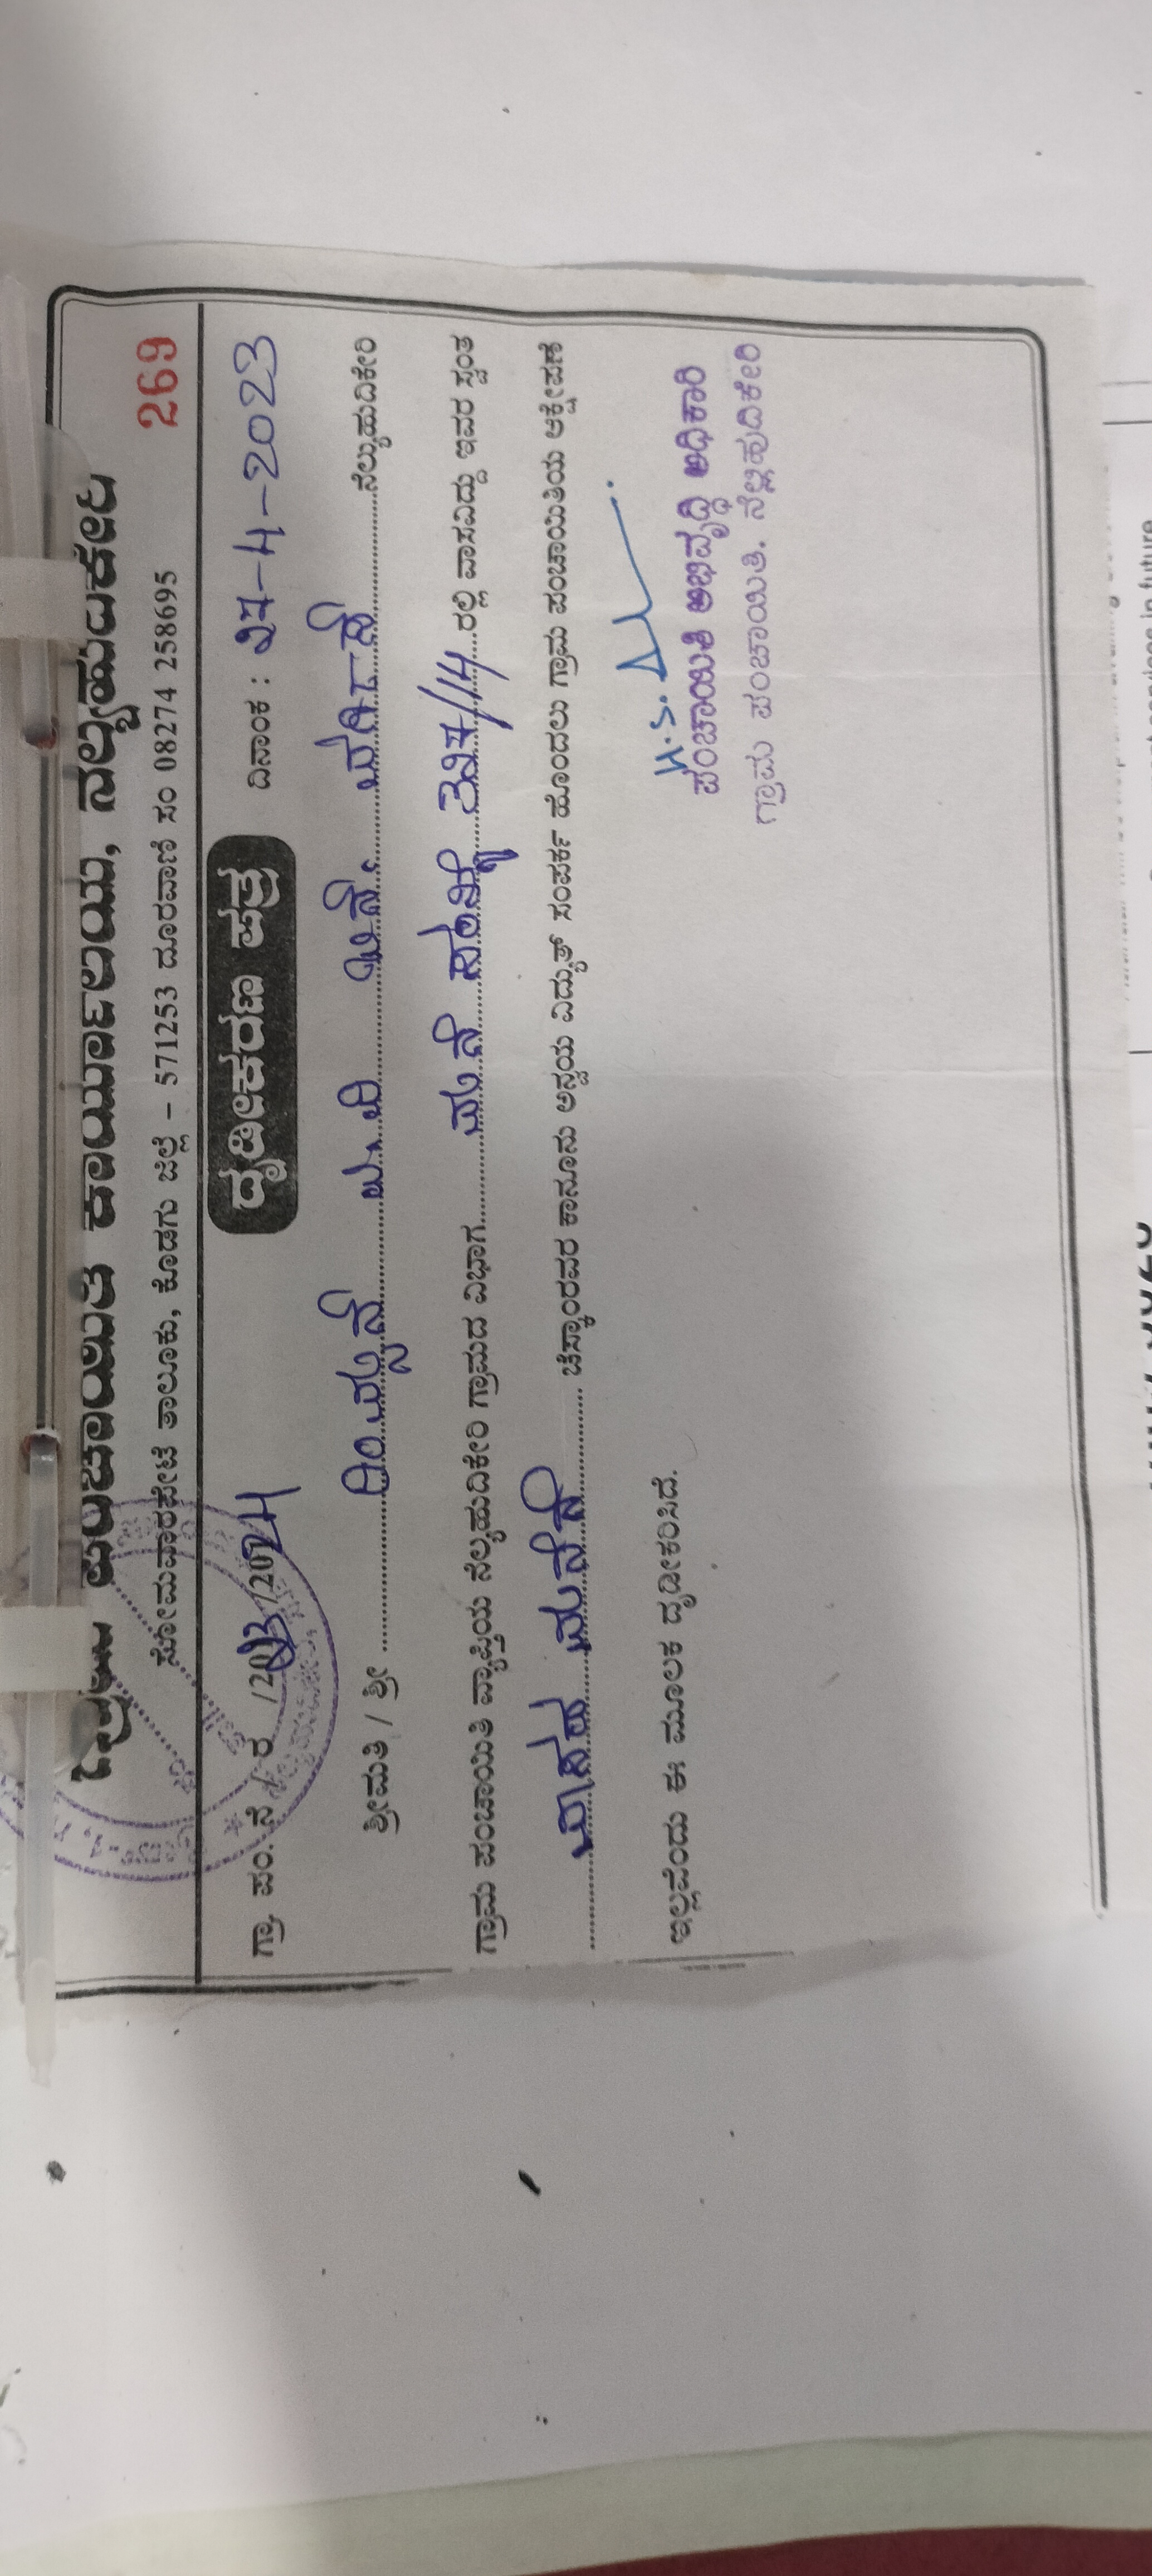 ಗ್ರಾಮ ಪಂಚಾಯಿತಿ ಕಾರ್ಯಾಲಯ, ನೆಲ್ಯಹುದಿಕೇರಿ
ಸೋಮವಾರಪೇಟೆ ತಾಲೂಕು, ಕೊಡಗು ಜಿಲ್ಲೆ - 571253 ದೂರವಾಣಿ ಸಂ 08274 258695
269
ಗ್ರಾ. ಪಂ. ನೆ / ರ /2023/2024
ದೃಢೀಕರಣ ಪತ್ರ
ದಿನಾಂಕ : 27-4-2023
ಶ್ರೀಮತಿ / ಶ್ರೀ ನೆಲ್ಯಹುದಿಕೇರಿ
ಗ್ರಾಮ ಪಂಚಾಯಿತಿ ವ್ಯಾಪ್ತಿಯ ನೆಲ್ಯಹುದಿಕೇರಿ ಗ್ರಾಮದ ವಿಭಾಗ ಮನೆ ಸಂಖ್ಯೆ 327/14 ರಲ್ಲಿ ವಾಸವಿದ್ದು ಇವರ ಸ್ವಂತ
ವಾಸದ ಮನೆಗೆ ಚೆಸ್ಕಾಂರವರ ಕಾನೂನು ಅನ್ವಯ ವಿದ್ಯುತ್ ಸಂಪರ್ಕ ಹೊಂದಲು ಗ್ರಾಮ ಪಂಚಾಯಿತಿಯ ಆಕ್ಷೇಪಣೆ
ಇಲ್ಲವೆಂದು ಈ ಮೂಲಕ ದೃಢೀಕರಿಸಿದೆ.
ಪಂಚಾಯಿತಿ ಅಭಿವೃದ್ಧಿ ಅಧಿಕಾರಿ
ಗ್ರಾಮ ಪಂಚಾಯಿತಿ. ನೆಲ್ಲಹುದಿಕೇರಿ